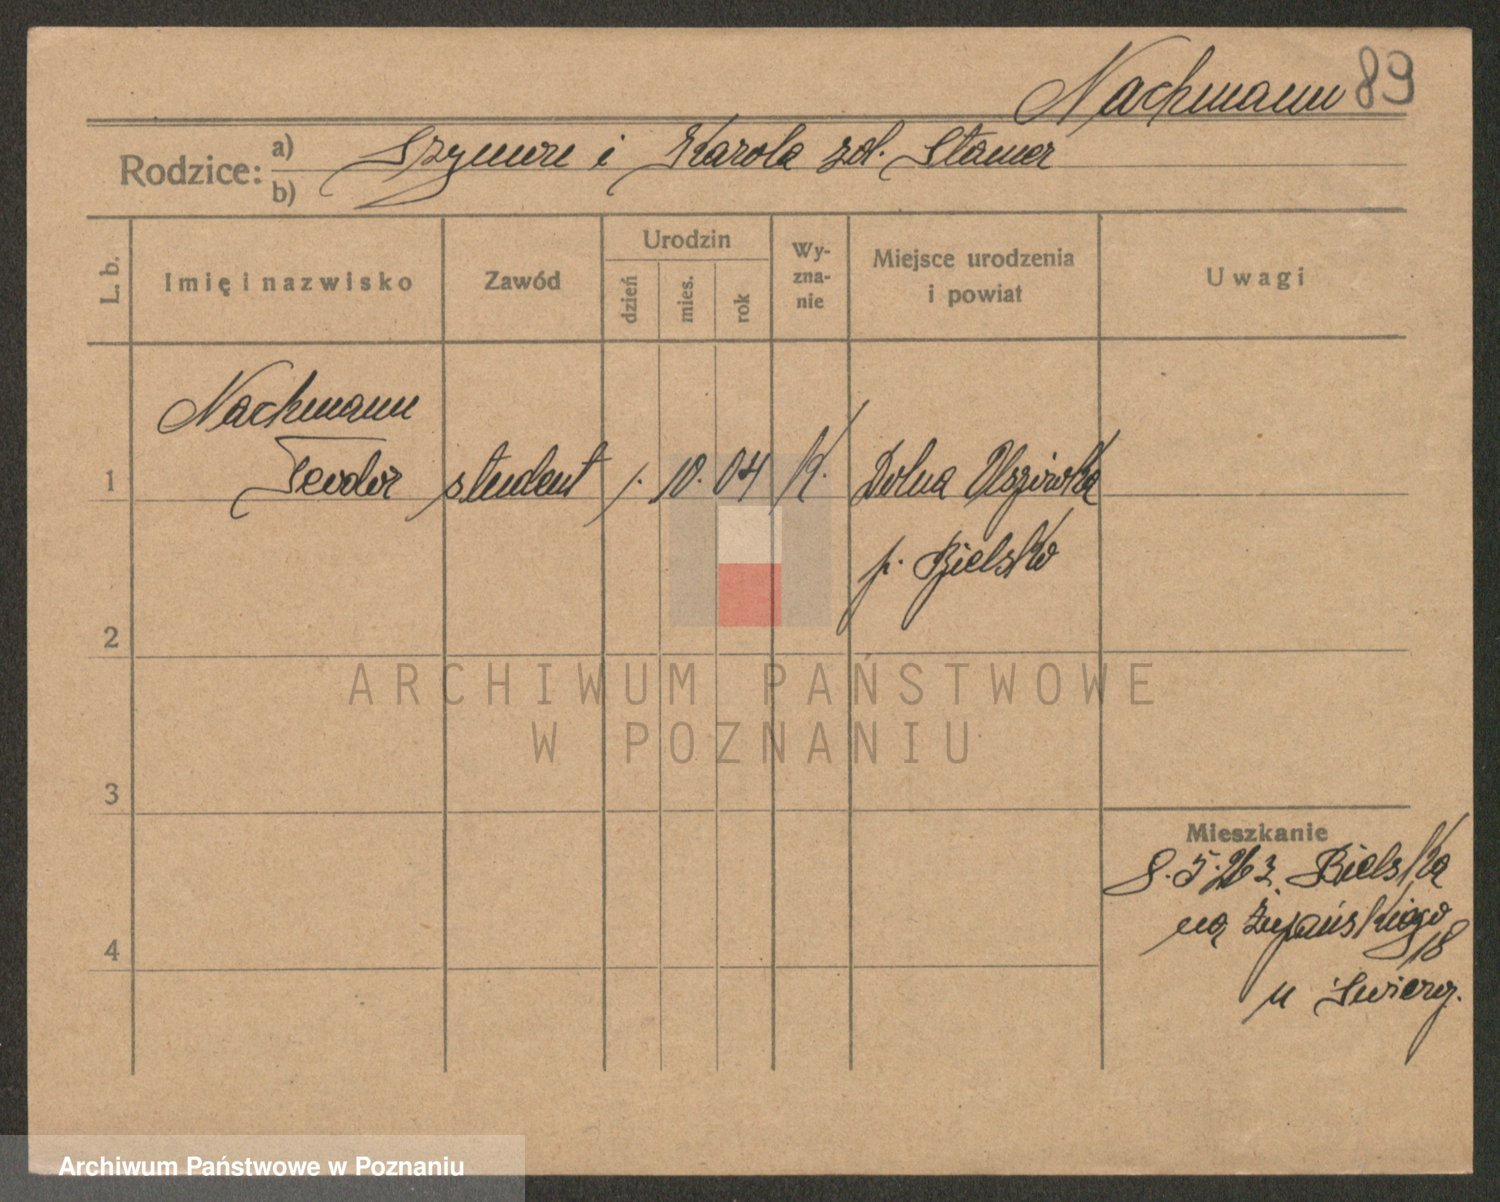 Nachmann 89
Rodzice: a) Szymon i Karola zd. Stamer
b)
L. b. Imię i nazwisko Zawód Urodzin dzień mies. rok Wy-zna-nie Miejsce urodzenia i powiat Uwagi
Nachmann
1 Teodor student 1. 10. 04 K. Dolna
p. Bielsko
2
3
Mieszkanie
8.5.26 z Bielska
na Żupańskiego
4 18
u
ARCHIWUM PAŃSTWOWE
W POZNANIU
Archiwum Państwowe w Poznaniu